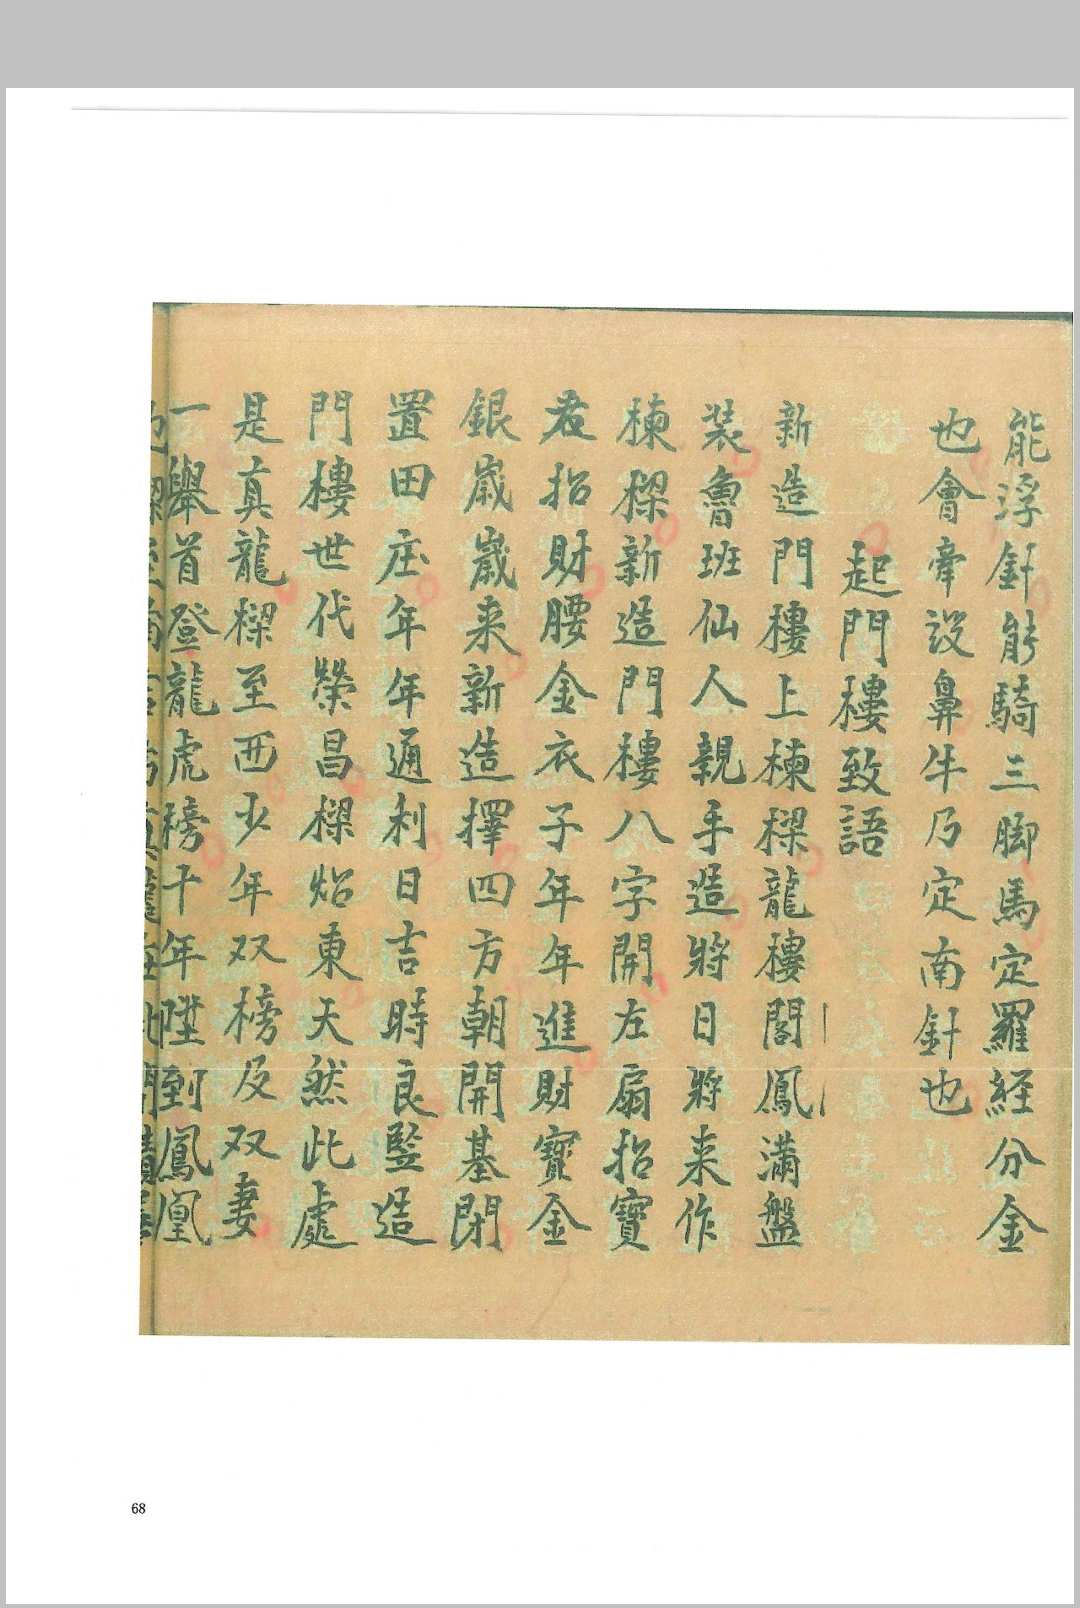 能浮針能騎三脚馬定羅経分金
也會牽設鼻牛乃定南針也
起門樓致語
新造門樓上棟樑龍樓閣鳳滿盤
装魯班仙人親手造將日將来作
棟樑新造門樓八字開左扇招寶
君招財腰金衣子年年進財寳金
銀歳歳来新造擇四方朝開基閉
置田庄年年通利日吉時良監造
門樓世代榮昌樑炲東天然此處
是真龍樑至西少年双榜及双妻
一舉首登龍虎榜十年陞到鳳凰
68